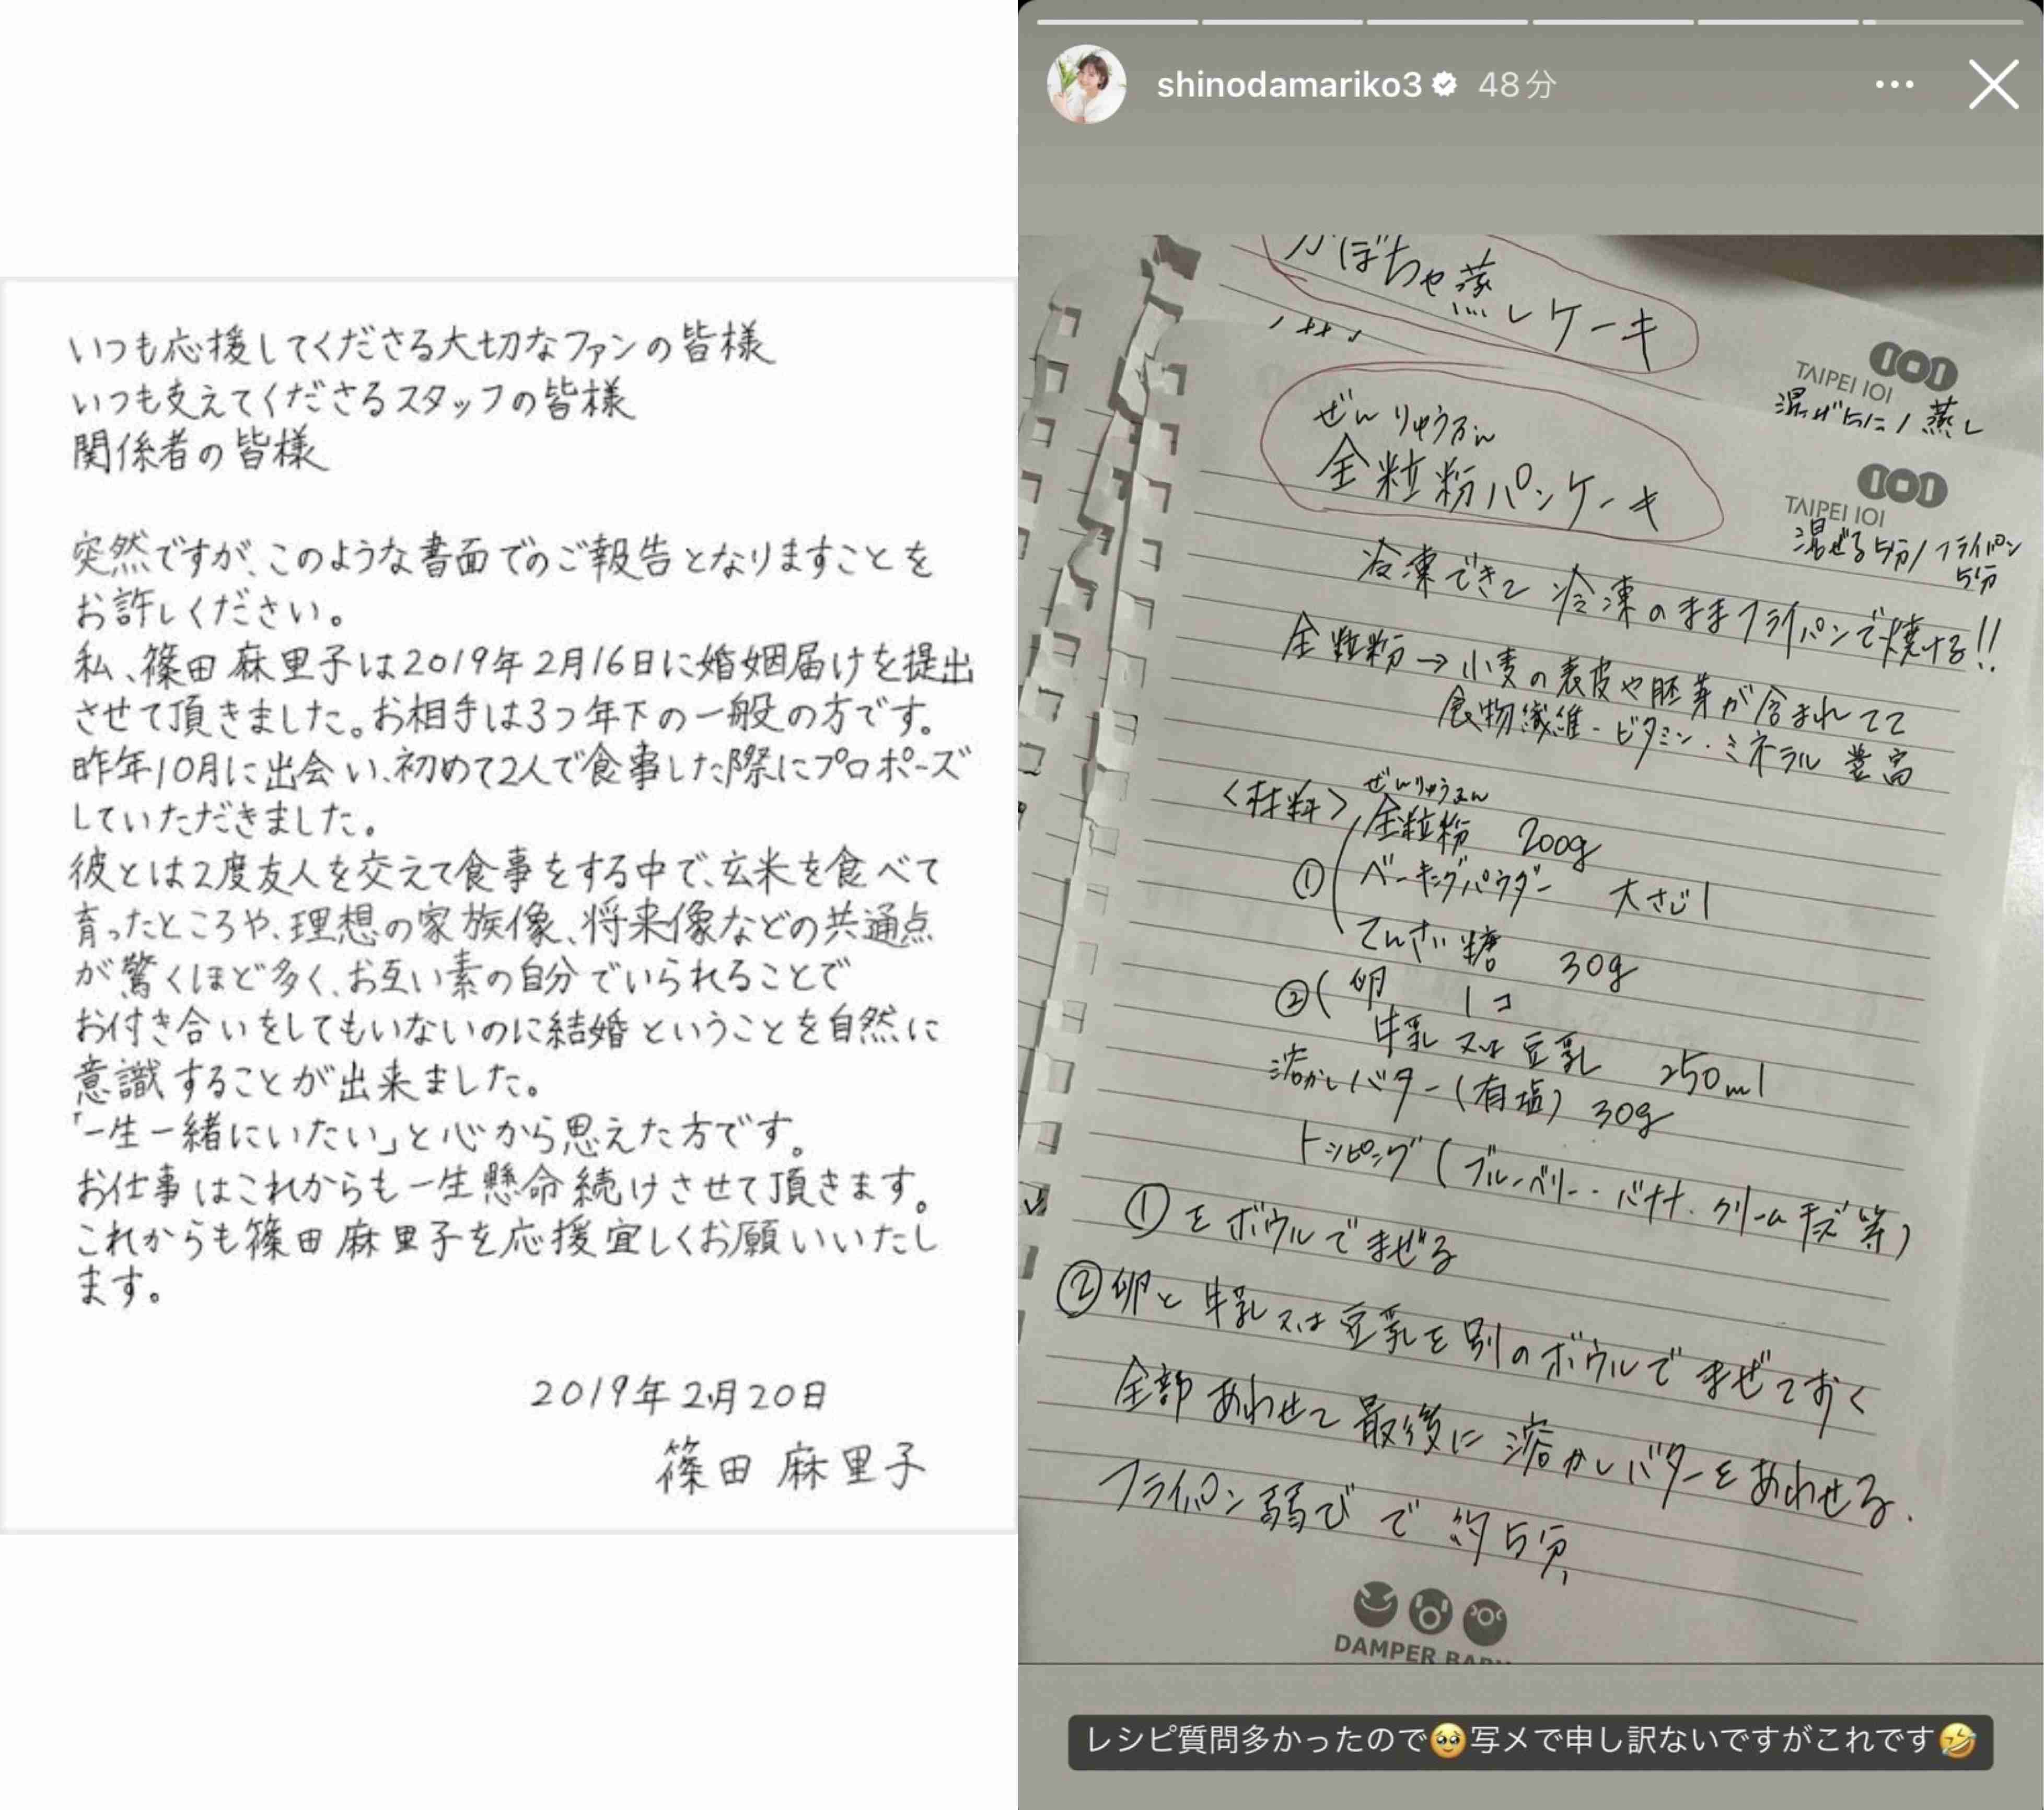 いつも応援してくださる大切なファンの皆様
いつも支えてくださるスタッフの皆様
関係者の皆様
突然ですが、このような書面でのご報告となりますことを
お許しください。
私、篠田麻里子は2019年2月16日に婚姻届けを提出
させて頂きました。お相手は3つ年下の一般の方です。
昨年10月に出会い、初めて2人で食事した際にプロポーズ
していただきました。
彼とは2度友人を交えて食事をする中で、玄米を食べて
育ったところや、理想の家族像、将来像などの共通点
が驚くほど多く、お互い素の自分でいられることで
お付き合いをしてもいないのに結婚ということを自然に
意識することが出来ました。
「一生一緒にいたい」と心から思えた方です。
お仕事はこれからも一生懸命続けさせて頂きます。
これからも篠田麻里子を応援宜しくお願いいたし
ます。
2019年2月20日
篠田 麻里子
shinodamariko3 48分
かぼちゃ蒸しケーキ
TAIPEI 101
蒸し
ぜんりゅうふん
全粒粉パンケーキ
TAIPEI 101
混ぜる5分/フライパン
5分
冷凍できて 冷凍のままフライパンで焼ける!!
全粒粉→小麦の表皮や胚芽が含まれてて
食物繊維・ビタミン・ミネラル 豊富
<材料>
ぜんりゅうふん
全粒粉 200g
① ベーキングパウダー 大さじ1
てんさい糖 30g
②( 卵 1コ
牛乳又は豆乳 250ml
溶かしバター(有塩) 30g
トッピング(ブルーベリー・バナナ・クリームチーズ等)
①をボウルでまぜる
②卵と牛乳又は豆乳を別のボウルでまぜておく
全部あわせて最後に溶かしバターをあわせる.
フライパン弱びで約5分
DAMPER BABY
レシピ質問多かったので🥹写メで申し訳ないですがこれです🤣